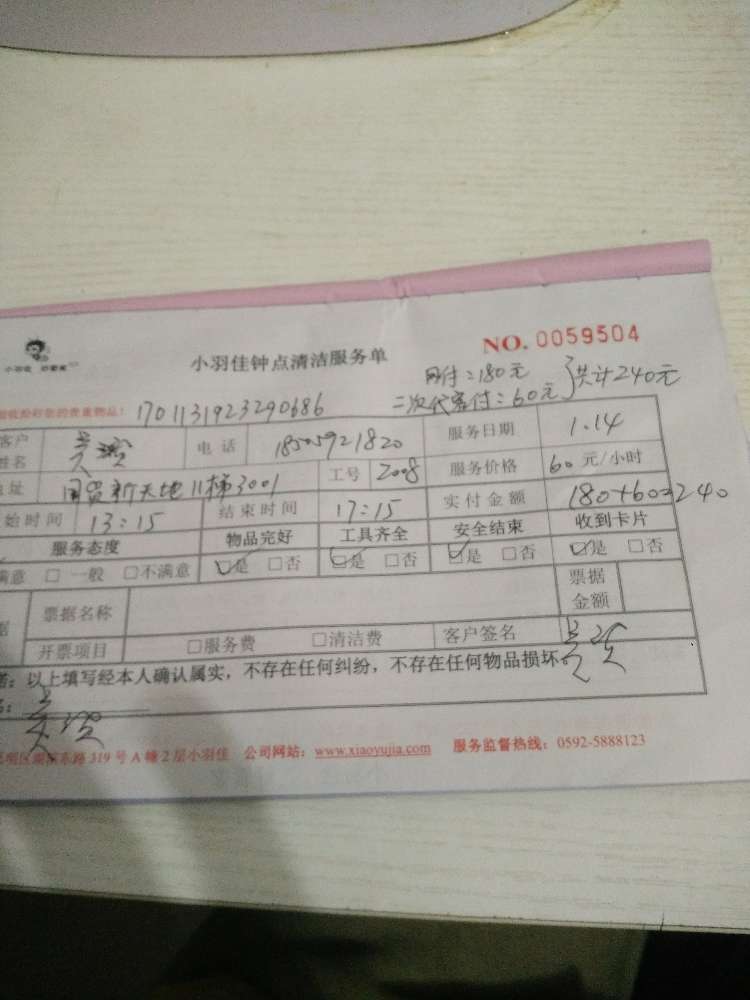 小羽佳钟点清洁服务单 NO. 0059504
网付：180元
二次代客付：60元 }共计240元
的贵重物品！ 1701131923290686
客户姓名 电话 18505921820 服务日期 1.14
地址 国贸新天地11梯3001 工号 2008 服务价格 60元/小时
始时间 13：15 结束时间 17：15 实付金额 180+60=240
服务态度 物品完好 工具齐全 安全结束 收到卡片
满意 □ 一般 □不满意 ☑是 □否 ☑是 □否 ☑是 □否 ☑是 □否
票据名称 票据金额
开票项目 □服务费 □清洁费 客户签名
：以上填写经本人确认属实，不存在任何纠纷，不存在任何物品损坏
东路319号A幢2层小羽佳 公司网站：www.xiaoyujia.com 服务监督热线：0592-5888123